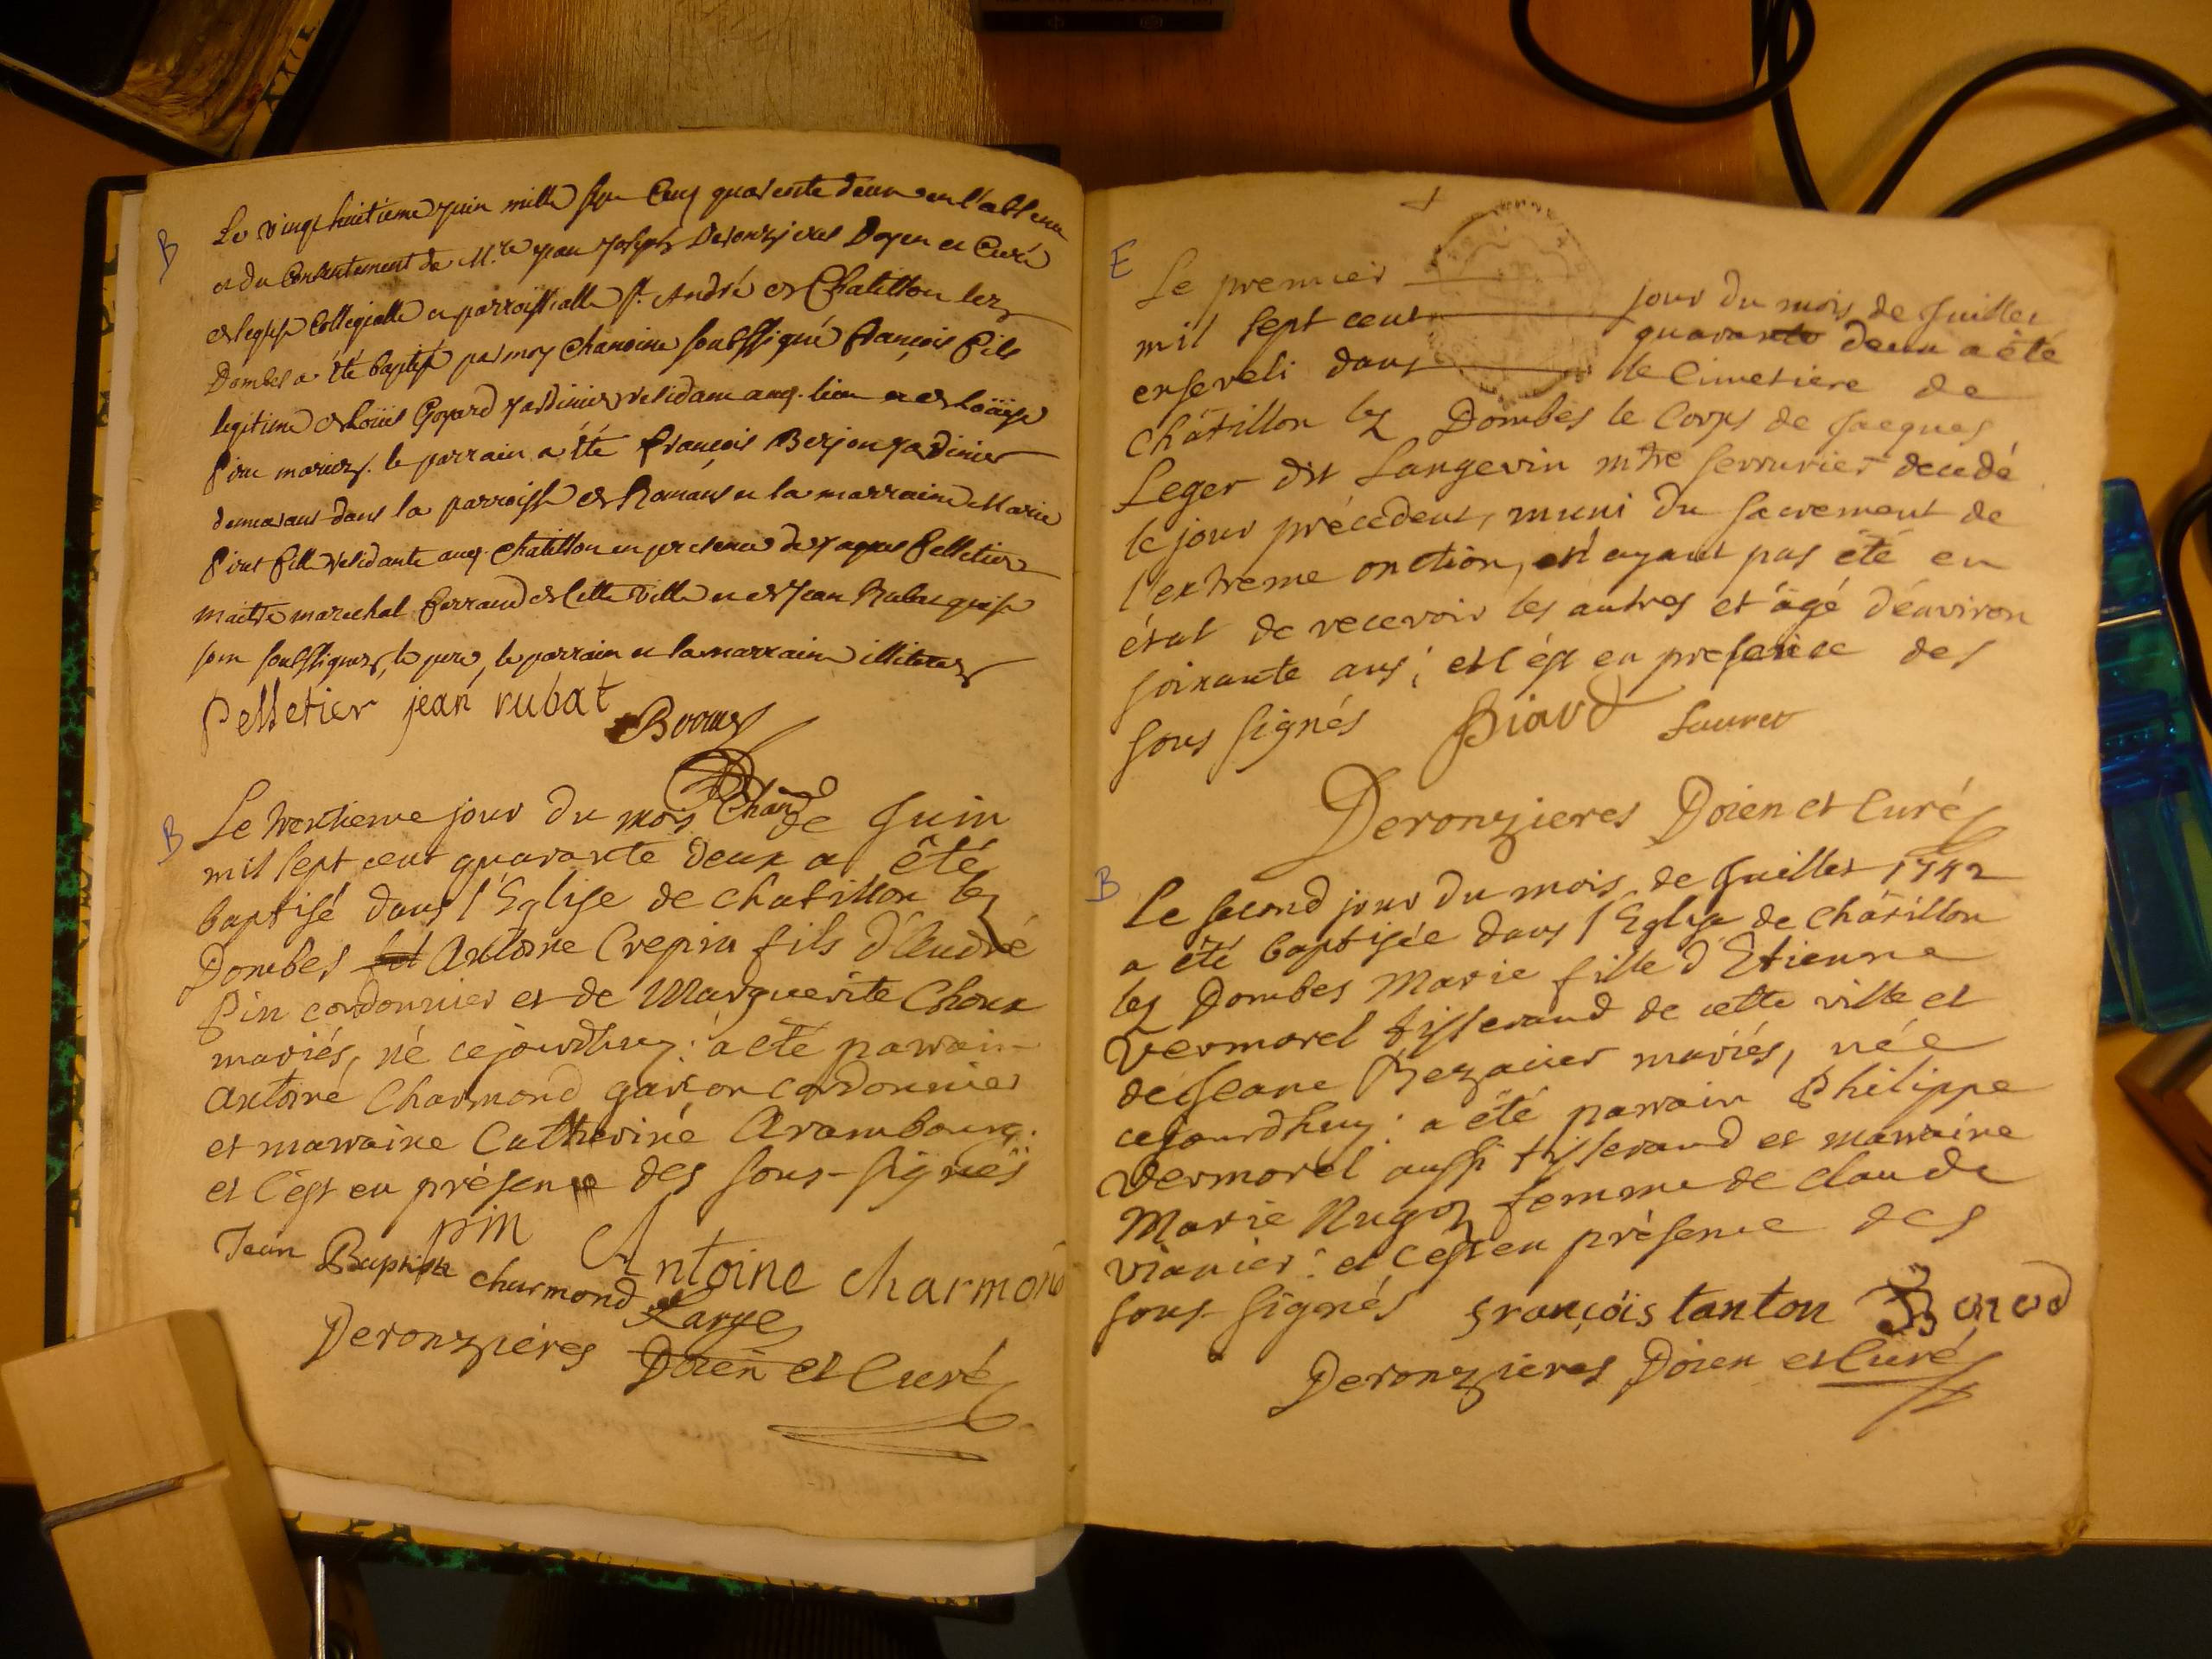 B
Le vingt huitieme juin mille sept Cent quarente deux en l'absence
et du Consentement de M.re jean joseph Deronzieres Doyen et Curé
de leglise Collegialle et parroissialle St. André de Chatillon lez
Dombes a été baptisé par moy chanoine soussigné françois fils
legitime de Loüis Goyard jardinier residant aud. lieu et de Loüise
Pirat mariez. le parrain a été françois Berjon jardinier
demeurant dans la parroisse de Romans et la marraine Marie
Pirat fille residante aud. chatillon en presence de jaques Pelletier
maitre marechal ferrand de Cette Ville et de Jean Rubat qui se
sont soussignez, le pere, le parrain et la marraine illiterez
Pelletier jean rubat
B
Le trentieme jour du mois de Juin
mil sept cent quarante deux a été
baptisé dans l'Eglise de chatillon lez
Dombes Antoine Crepin fils d'André
Pin cordonnier et de Marguerite Choux
mariés, né cejourdhuy: a été parrain
Antoine Charmond garcon cordonnier
et marraine Catherine Arambourg.
et c'est en présence des sous-signés
pin
Jean Baptiste charmond Antoine charmond
Large
Deronzières Doien et Curé
E
Le premier jour du mois de Juillet
mil sept cent quarante deux a été
enseveli dans le Cimetiere de
châtillon lez Dombes le Corps de Jacques
Leger dit Langevin mtre serrurier decedé
le jour précédent, muni du sacrement de
l'extreme onction, n'ayant pas été en
état de recevoir les autres et âgé d'environ
soixante ans; et c'est en presence des
sous signés Biard Sauret
Deronzieres Doien et Curé
B
Le second jour du mois de Juillet 1742
a été baptisée dans l'Eglise de châtillon
lez Dombes Marie fille d'Etienne
Vermorel tisserand de cette ville et
de Jeane Bezanier mariés, née
cejourdhuy: a été parrain Philippe
Vermorel aussi tisserand et marraine
Marie Nugoz femme de claude
vianier: et c'est en présence des
sous-signés françois tanton
Deronzieres Doien et Curé